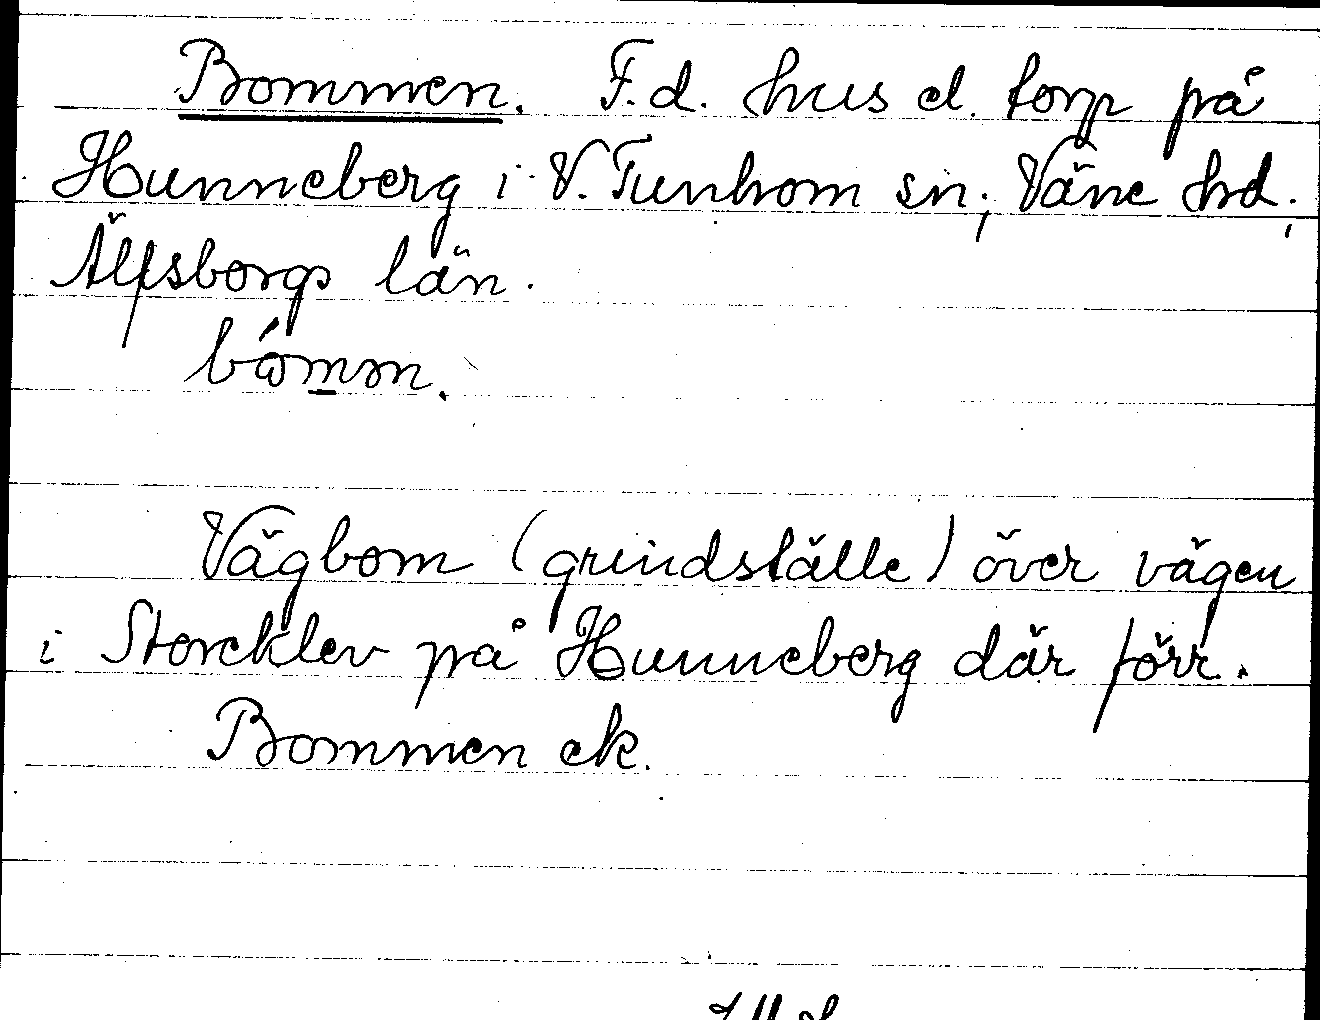 Bommen. F.d. hus el. torp på
Hunneberg i V. Tunhem sn, Väne hd,
Älfsborgs län.
bómm.
Vägbom (grindställe) över vägen
i Storeklev på Hunneberg där förr.
Bommen ek.